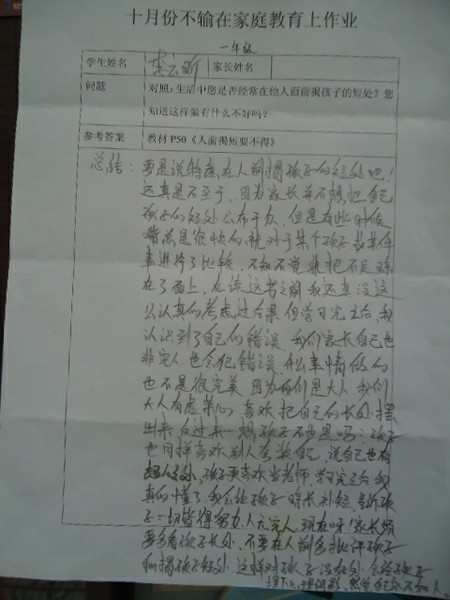 十月份不输在家庭教育上作业
一年级
学生姓名 李云昕 家长姓名
问题 对照：生活中您是否经常在他人面前揭孩子的短处？您
知道这样做有什么不好吗？
参考答案 教材 P50《人前揭短要不得》
总结：要是说特意在人前揭孩子的短处吧！
还真是不至于，因为家长并不想把自己
孩子的短处公布于众，但是有些时候
嘴总是很快的，就对于某个孩子或某件
事进行了比较，不知不觉就把不足
在了面上，在读这书之前我还真没这
么认真的考虑过后果，但学习完之后，我
认识到了自己的错误，我们家长自己也
非完人也会犯错误，做事情做的
也不是很完美，因为我们是大人，我们
大人有虚荣心，喜欢把自己的长处摆
出来，反过来一想孩子不也是吗？孩子
也同样喜欢别人夸奖自己，说自己也有
过人之处，孩子更喜欢当老师，学习完之后我
真的懂了，我会让孩子 取长补短 告诉孩
子一切皆得努力，人无完人，现在呀！家长须
要多看孩子长处，不要在人前多批评孩子
和揭孩子短处，这样对孩子没好处，会给孩子